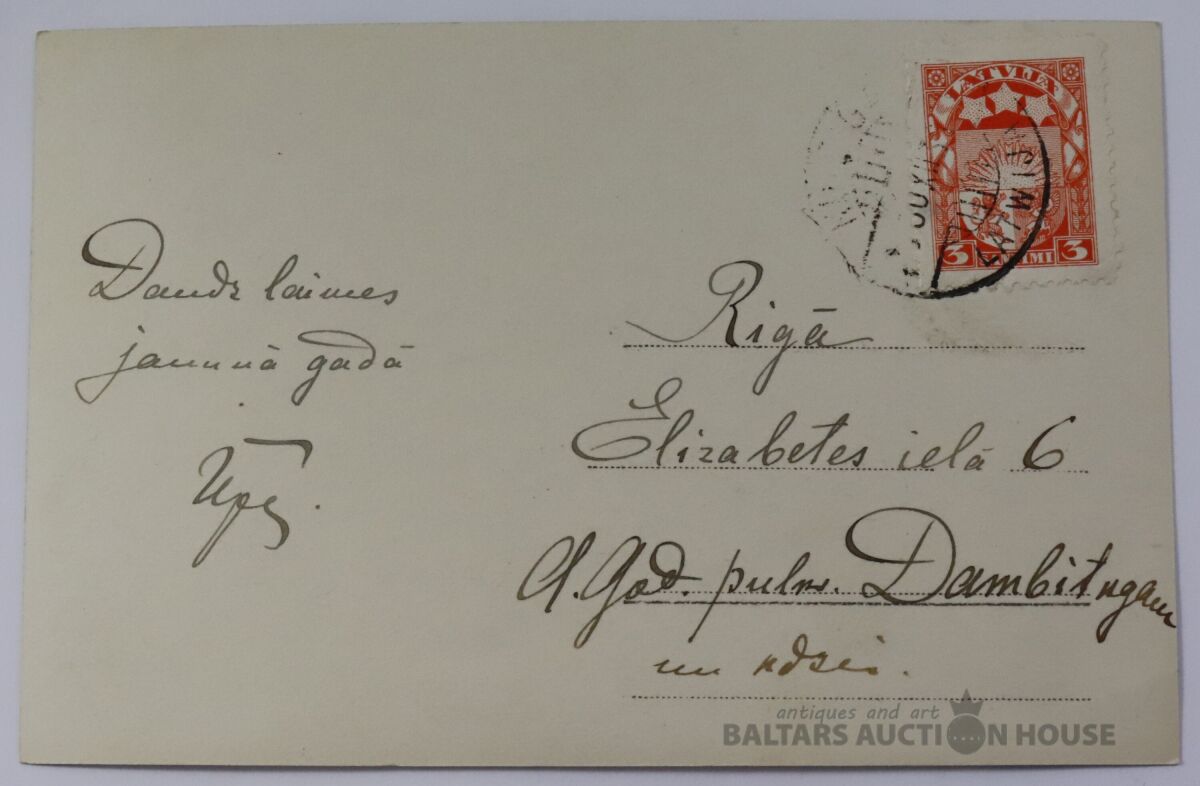 Daudz laimes
jaunnā gadā
Rigā
Elizabetes ielā 6
A. God. pulw. Dambit kgam
un kdzei.
LATVIJA
3 SANTIMI 3
LATWIJA
antiques and art
BALTARS AUCTION HOUSE